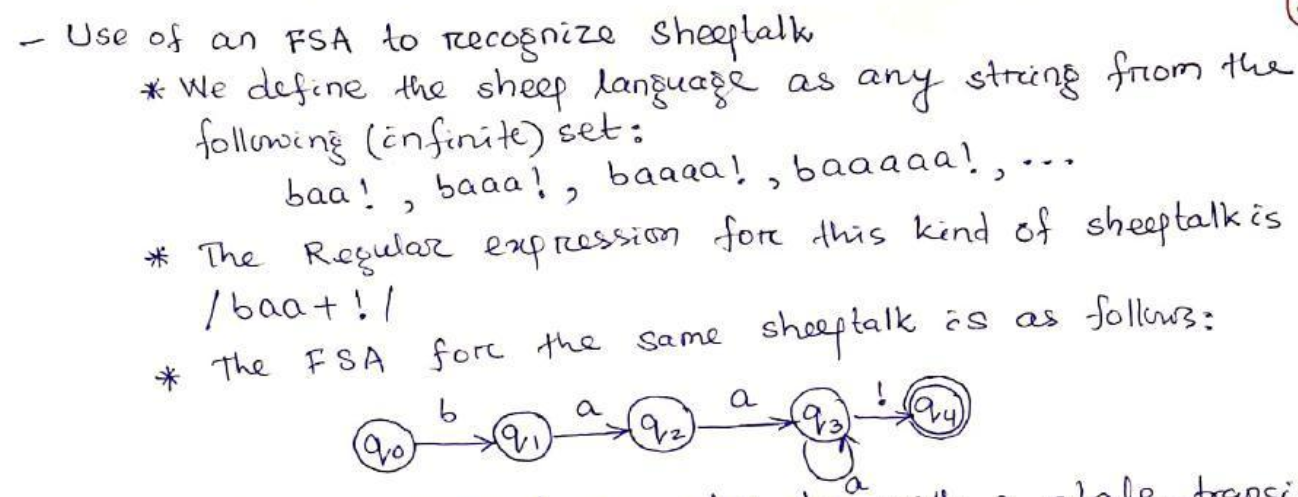 - Use of an FSA to recognize Sheeptalk
* We define the sheep language as any string from the
following (infinite) set:
baa!, baaa!, baaaa!, baaaaa!, ...
* The Regular expression for this kind of sheeptalk is
/baa+!/
* The FSA for the same sheeptalk is as follows:
b a a !
q0 q1 q2 q3 q4
a
state transi